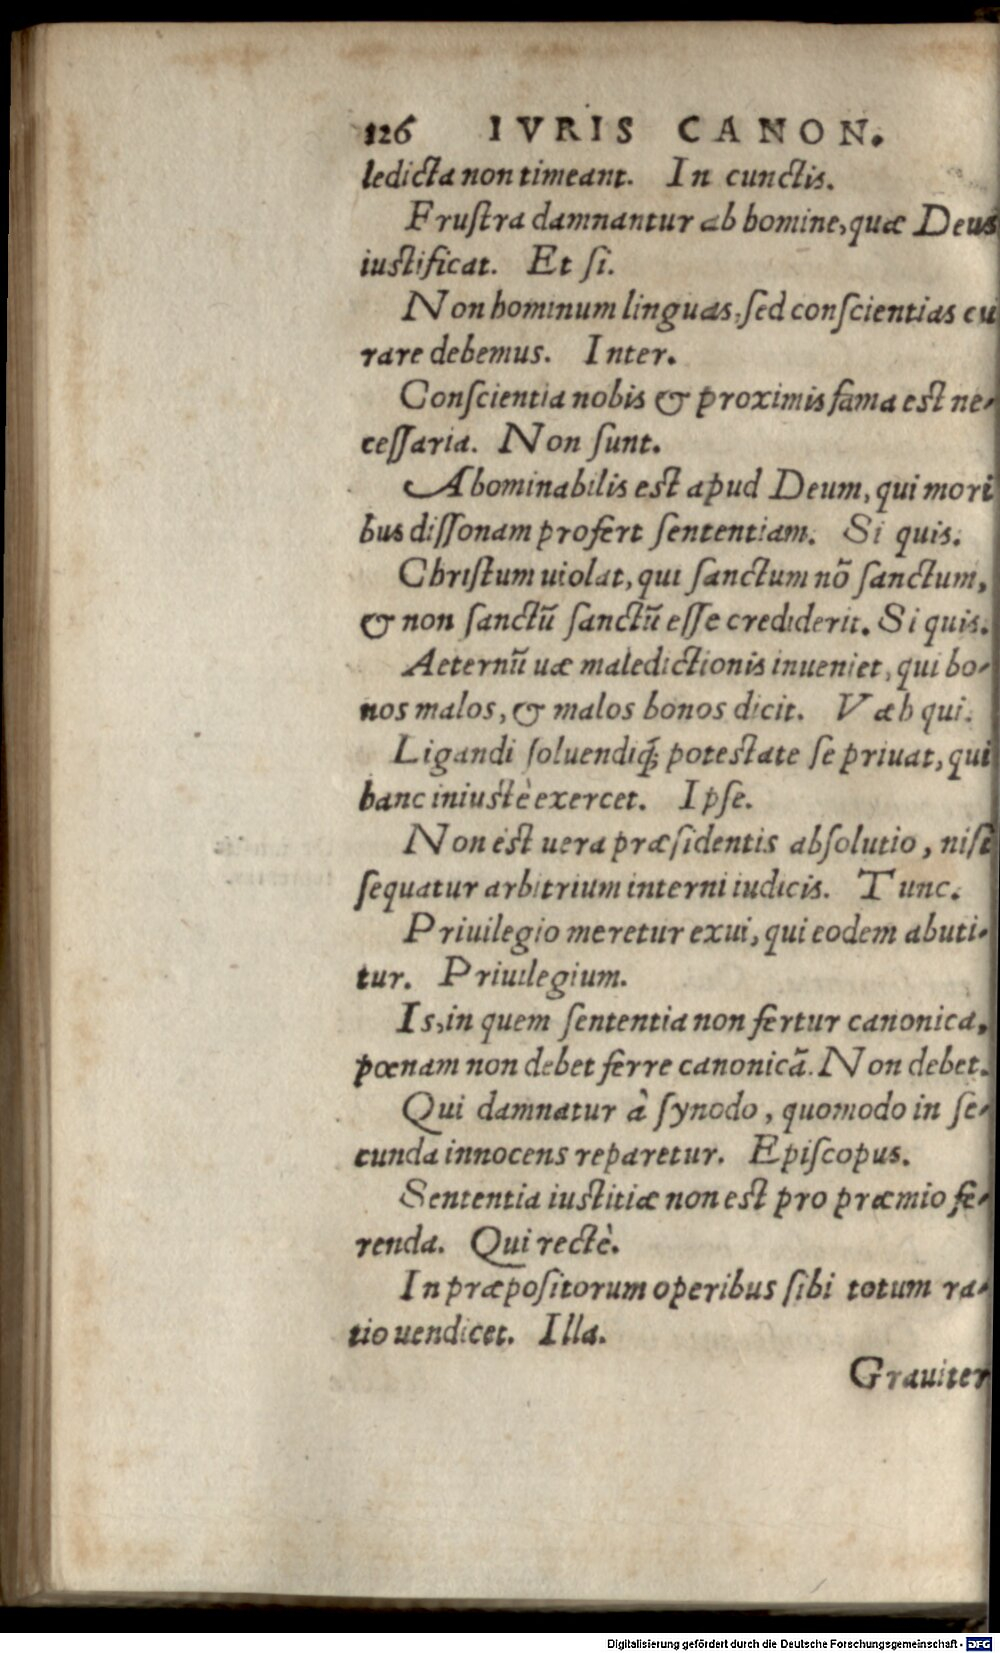 126 IVRIS CANON.
ledicta non timeant. In cunctis.
Fruſtra damnantur ab homine, quæ Deus
iuſtificat. Et ſi.
Non hominum linguas, ſed conſcientias cu
rare debemus. Inter.
Conſcientia nobis & proximis fama eſt ne-
ceſſaria. Non ſunt.
Abominabilis eſt apud Deum, qui mori
bus diſſonam profert ſententiam. Si quis.
Chriſtum uiolat, qui ſanctum nõ ſanctum,
& non ſanctũ ſanctũ eſſe crediderit. Si quis.
Aeternũ uæ maledictionis inueniet, qui bo-
nos malos, & malos bonos dicit. Væh qui.
Ligandi ſoluendiq́; poteſtate ſe priuat, qui
hanc iniuſtè exercet. Ipſe.
Non eſt uera præſidentis abſolutio, niſi
ſequatur arbitrium interni iudicis. Tunc.
Priuilegio meretur exui, qui eodem abuti-
tur. Priuilegium.
Is, in quem ſententia non fertur canonica,
pœnam non debet ferre canonicã. Non debet.
Qui damnatur à ſynodo, quomodo in ſe-
cunda innocens reparetur. Epiſcopus.
Sententia iuſtitiæ non eſt pro præmio fe-
renda. Qui rectè.
In præpoſitorum operibus ſibi totum ra-
tio uendicet. Illa.
Grauiter
Digitalisierung gefördert durch die Deutsche Forschungsgemeinschaft - DFG